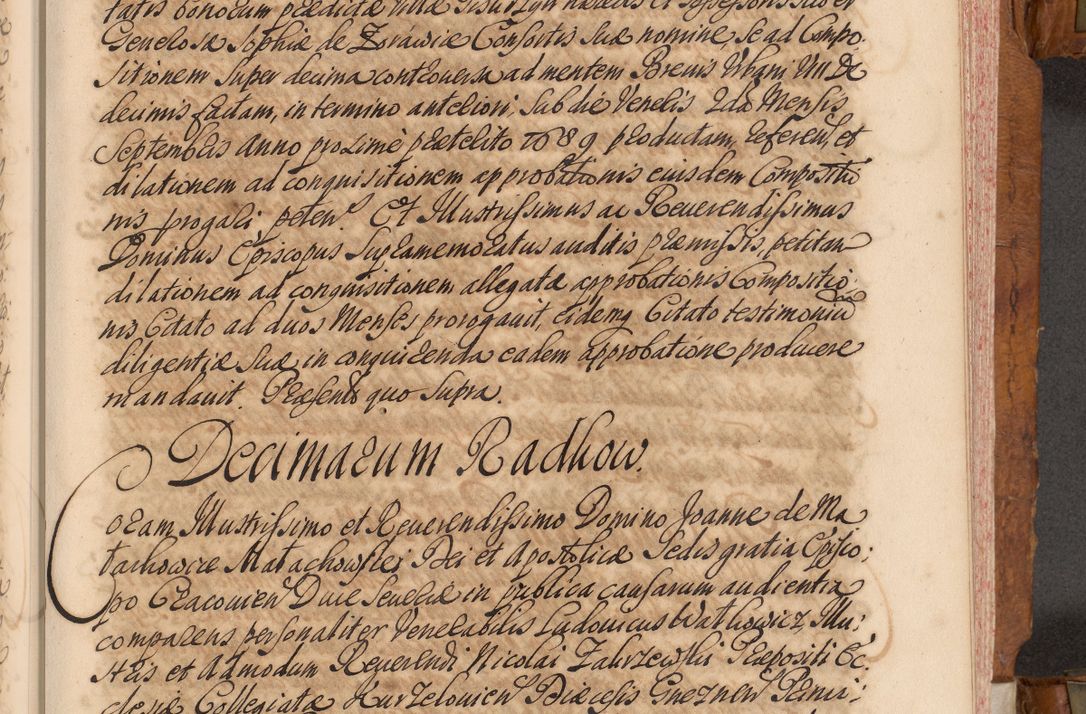 tatis bonorum prædictæ villæ hæredis et Possessoris suo et
Generosæ Sophiæ de Zorawice Consortis suæ nomine, se ad Compo
sitionem super decima controversa ad mentem Brevis Urbani VIII De
decimis factam, in termino anteriori, sub die Veneris 2da Mensis
Septembris Anno proximè præterito 1689 productam, referen. et
dilationem ad conquisitionem approbationis eiusdem Compositio
nis progari peten. Et Illustrissimus ac Reverendissimus
Dominus Episcopus supramemoratus auditis præmissis, petitam
dilationem ad conquisitionem allegatæ approbationis Compositio:
nis Citato ad duos Menses prorogavit, eidemq Citato testimonium
diligentiæ suæ, in conquirenda eadem approbatione producere
mandavit. Præsentib quo supra.
Decimarum Radkow.
Coram Illustrissimo et Reverendissimo Domino Joanne de Ma
łachowice Małachowski Dei et Apostolicæ Sedis gratia Episco:
po Cracovien Duce Severiæ in publica causarum audientia
comparens personaliter Venerabilis Ludovicus Wathowicz, Illu:
stris et Admodum Reverendi Nicolai Zakrzewski Præpositi Ec:
clesiæ Collegiatæ Kurzelovien Diæcesis Gneznen